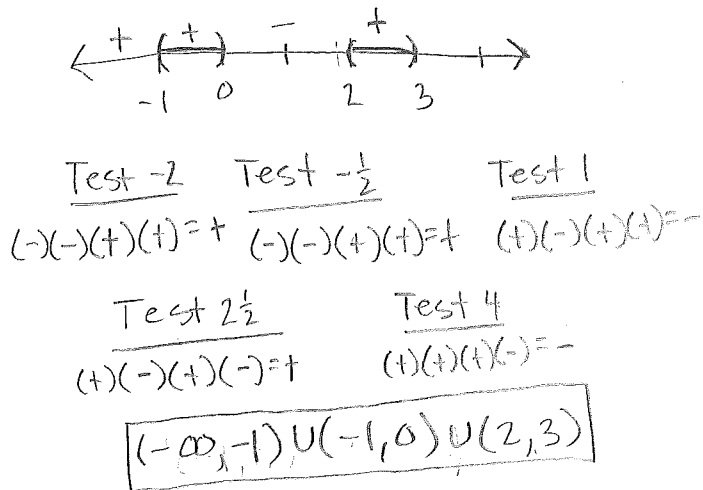 + + - +
-1 0 2 3
Test -2 Test -1/2 Test 1
(-)(-)(+)(+)=+ (-)(-)(+)(+)=+ (+)(-)(+)(+)=-
Test 2 1/2 Test 4
(+)(-)(+)(-)=+ (+)(+)(+)(-)=-
(-∞,-1)∪(-1,0)∪(2,3)